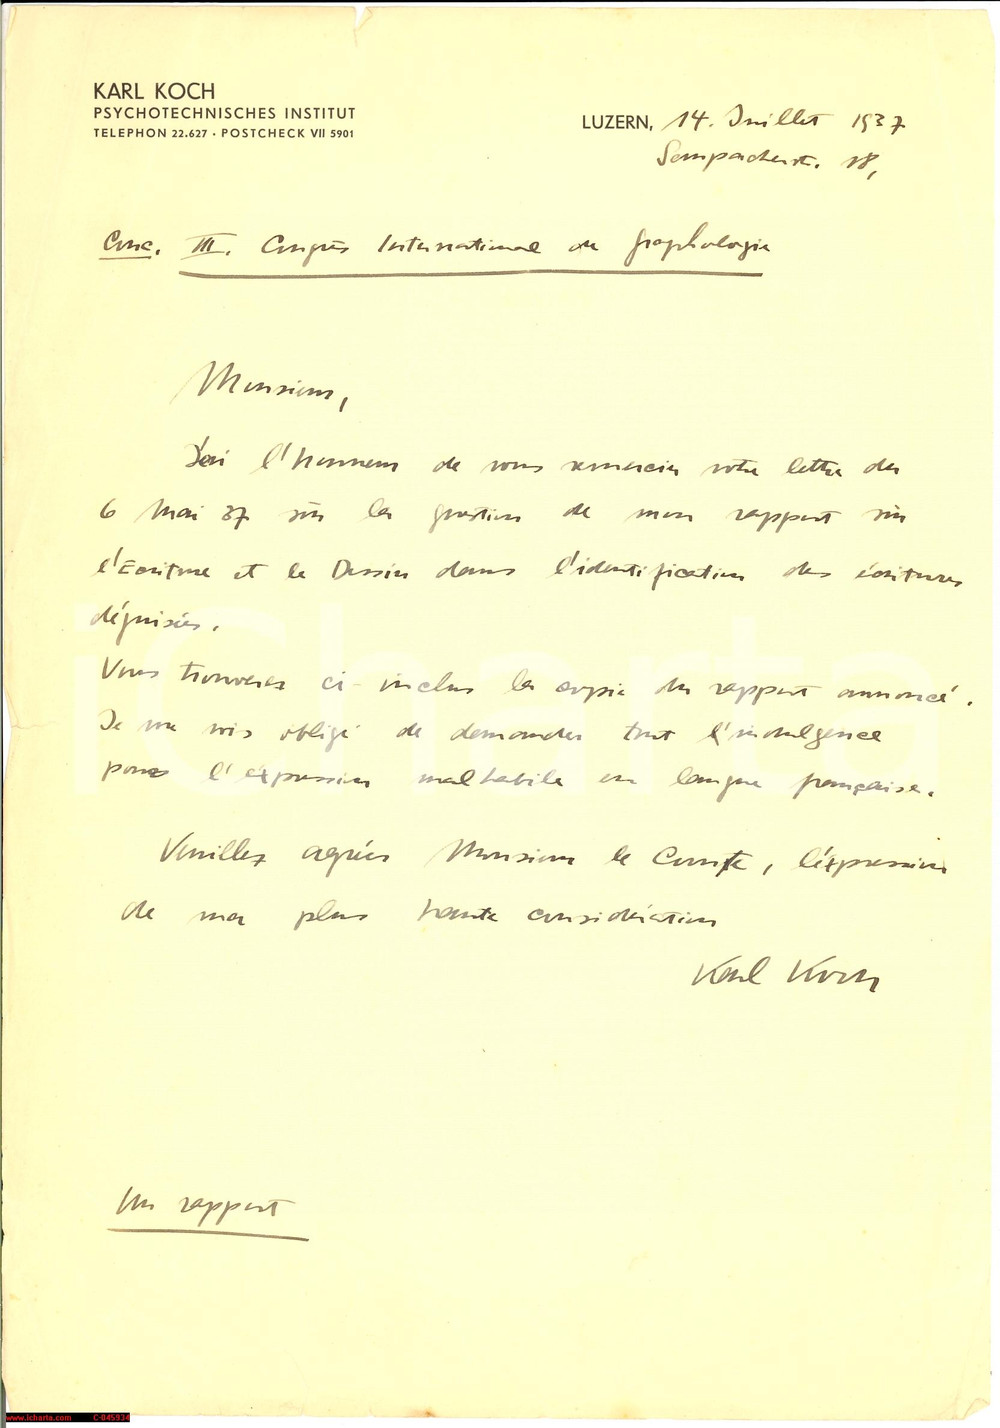 KARL KOCH
PSYCHOTECHNISCHES INSTITUT
TELEPHON 22.627 · POSTCHECK VII 5901
LUZERN, 14. Juillet 1937
Sempacherstr. 18,
Conc. III. Congrès International de graphologie
Monsieur,
J'ai l'honneur de vous remercier votre lettre du
6 Mai 37 sûr la question de mon rapport sûr
l'Ecriture et le Dessin dans l'identification des écritures
déguisées.
Vous trouverez ci-inclus la copie du rapport annoncé.
Je me vois obligé de demander tout l'indulgence
pour l'éxpression malhabile en langue française.
Veuillez agréer Monsieur le Comte, l'éxpression
de ma plus haute considération
Karl Koch
Un rapport
iCharta
www.icharta.com C-045934